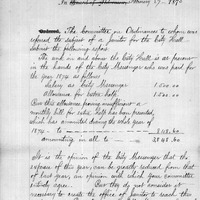 In Board of Aldermen, February 27. 1875
Ordered, The Committee on Ordinances to whom was
referred the subject of a Janitor for the City Hall
submit the following report
The work in and about the City Hall is at present
in the hands of the City Messenger who was paid for
the year 1874 as follows
Salary as City Messenger 1,500.00
allowance for extra help 1,500.00
Over this allowance having insufficient a
monthly bill for extra help has been presented,
which has amounted during the whole year of
1874 to
amounting in all to
It is the opinion of the City Messenger that the
expense of this year can be greatly reduced from that
of last year an opinion with which your Committee
entirely agree. But they do not consider it
necessary to create the office of Janitor to reach this